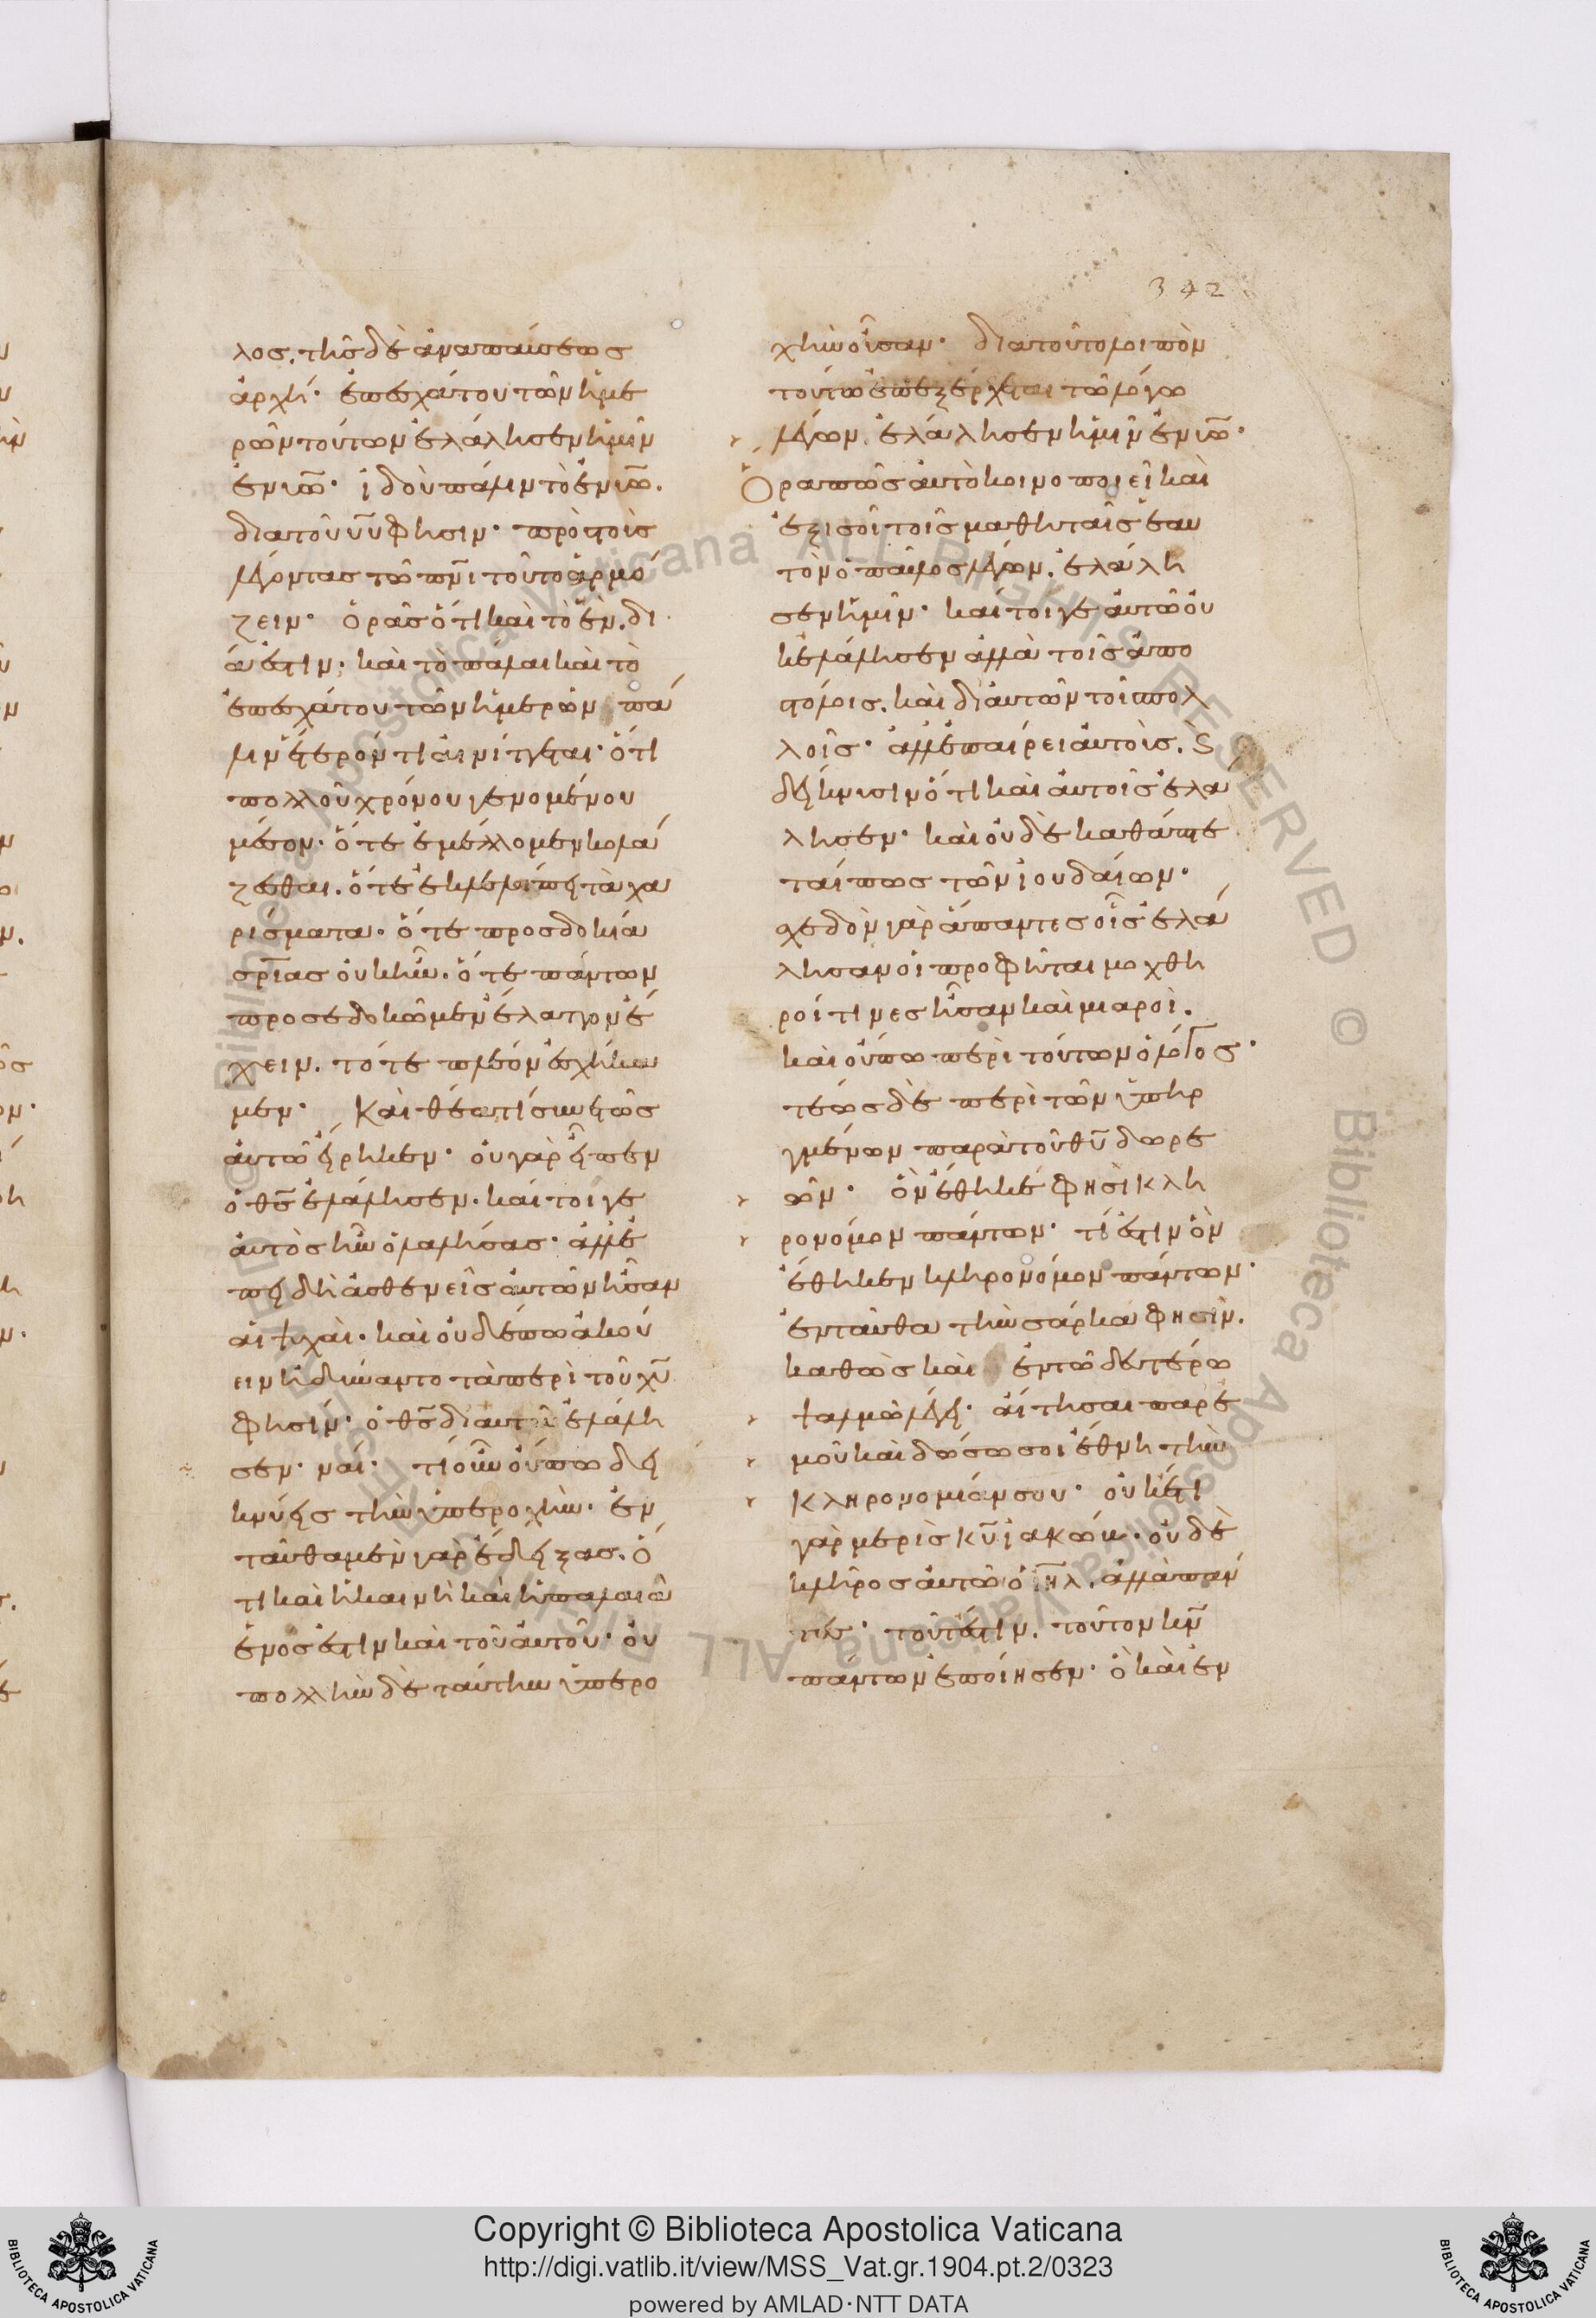 342
λος. τῆς δὲ ἀναπαύσεως
ἀρχή· ἐπεσχάτου τῶν ἡμε
ρῶν τούτων ἐλάλησεν ἡμῖν
ἐν υἱῶ· ἰδοὺ πάλιν τὸ ἐν υἱῶ.
διὰ τοῦ υυ φησιν· πρὸς τοὺς
λέγοντας τῶ πνι τοῦτο ἁρμό
ζειν· ὁρᾶς ὅτι καὶ τὸ ἐν. δι
ά ἐστιν· καὶ τὸ πάλαι καὶ τὸ
ἐπεσχάτου τῶν ἡμερῶν πά
λιν ἕτερόν τι αἰνίττεται· ὅτι
πολλοῦ χρόνου γενομένου
μέσον· ὅτε ἐμέλλομεν κολά
ζεσθαι. ὅτε ἐκλελοίπει τὰ χα
ρίσματα. ὅτε προσδοκία
σριας οὐκ ἦν. ὅτε πάντων
προσεδοκῶμεν ἔλαττον ἔ
χειν. τότε πλέον ἐσχήκα
μεν· Καὶ θέα τί συνετῶς
αὐτὸ εἴρηκεν· οὐ γὰρ εἶπεν
ὁ θς ἐλάλησεν. καί τοιγε
αὐτὸς ἦν ὁ λαλήσας· ἀλλ ἐ
πειδὴ ἀσθενεῖς αὐτῶν ἦσαν
αἱ ψυχαὶ. καὶ οὐδέπω ἀκού
ειν ἠδύναντο τὰ περὶ τοῦ χυ
φησὶν· ὁ θς δι αὐτοῦ ἐλάλη
σεν. ναί· τί οὖν οὔπω δει
κνύεις τὴν ὑπεροχὴν· ἐν
ταῦθα μὲν γὰρ ἔδειξας. ὅ
τι καὶ ἡ καινὴ καὶ ἡ παλαιὰ
ἑνος ἐστὶν καὶ τοῦ αὐτοῦ· οὐ
πολλὴν δὲ ταύτην ὑπερο
χὴν οὖσαν· διατοῦτο λοιπὸν
τούτω ἐπεξέρχεται τῶ λόγω
λέγων. ἐλάλησεν ἡμῖν ἐν υἱῶ·
Ὅρα πῶς αὐτὸ κοινοποιεῖ καὶ
ἐξισοῖ τοῖς μαθηταῖς ἑαυ
τὸν ὁ παῦλος λέγων. ἐλάλη
σεν ἡμῖν· καί τοιγε αὐτῶ οὐ
κ ἐλάλησεν ἀλλὰ τοῖς ἀπο
στόλοις. καὶ δι αὐτῶν τοῖς πολ
λοῖς· ἀλλ ἐπαίρει αὐτοὺς. ϗ
δείκνυσιν ὅτι καὶ αὐτοῖς ἐλά
λησεν· καὶ οὐδὲ καθάπτε
ταί πως τῶν ἰουδαίων·
σχεδὸν γὰρ ἅπαντες οἷς ἐλά
λησαν οἱ προφῆται μοχθη
ροί τινες ἦσαν καὶ μιαροὶ.
καὶ οὔπω περὶ τούτων ὁ λόγος·
τέως δὲ περὶ τῶν ὑπηρ
γμένων παρὰ τοῦ θυ δωρε
ῶν· ὃν ἔθηκέ φησὶ κλη
ρονόμον πάντων· τί ἐστιν ὃν
ἔθηκεν κληρονόμον πάντων·
ἐνταῦθα τὴν σάρκα φησὶν.
καθὼς καὶ ἐν τῶ δευτέρω
ψαλμῶ λέγει· αἴτησαι παρ ἐ
μοῦ καὶ δώσω σοι ἔθνη τὴν
κληρονομίαν σου· οὐκ ἔτι
γὰρ μερὶς κυ ἰακώβ. οὐδὲ
κλῆρος αὐτῶ ὁ ιηλ. ἀλλὰ πάν
τες· τουτέστιν. τοῦτον κν
πάντων ἐποίησεν· ὃ καὶ ἐν
Copyright © Biblioteca Apostolica Vaticana
http://digi.vatlib.it/view/MSS_Vat.gr.1904.pt.2/0323
powered by AMLAD·NTT DATA
BIBLIOTECA APOSTOLICA VATICANA
BIBLIOTECA APOSTOLICA VATICANA